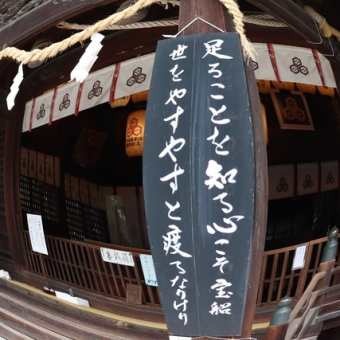 足ることを知る心こそ宝船
世をやすやすと渡るなりけり